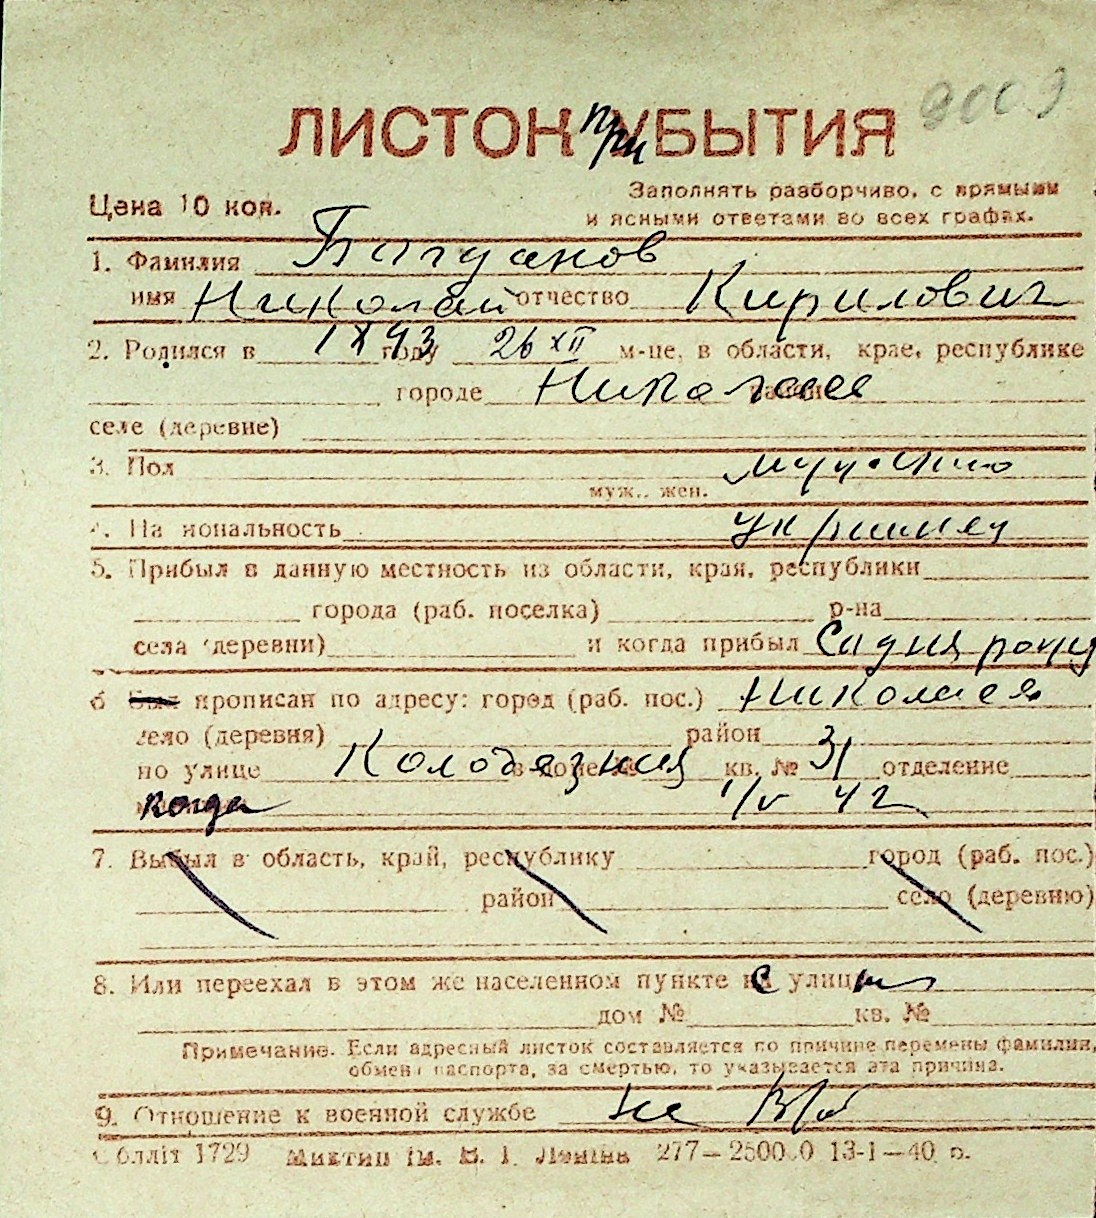 9009
ЛИСТОК при УБЫТИЯ
Цена 10 коп.
Заполнять разборчиво, с прямыми
и ясными ответами во всех графах.
1. Фамилия Богданов
имя Николай отчество Кирилович
2. Родился в 1893 году 26 XII м-це, в области, крае, республике
городе Николаев
селе (деревне)
3. Пол мужской
муж., жен.
4. На иональность украинец
5. Прибыл в данную местность из области, края, республики
города (раб. поселка) р-на
села (деревни) и когда прибыл
6 Был прописан по адресу: город (раб. пос.) Николаев
село (деревня) район
по улице Колодезная в доме № кв. № 31 отделение
когда 1/V 42
7. Выбыл в область, край, республику город (раб. пос.)
район село (деревню)
8. Или переехал в этом же населенном пункте с улицы
дом № кв. №
Примечание. Если адресный листок составляется по причине перемены фамилии,
обмена паспорта, за смертью, то указывается эта причина.
9. Отношение к военной службе не в/об
Облліт 1729 Миктип ім. В. І. Леніна 277—250000 13-I—40 р.